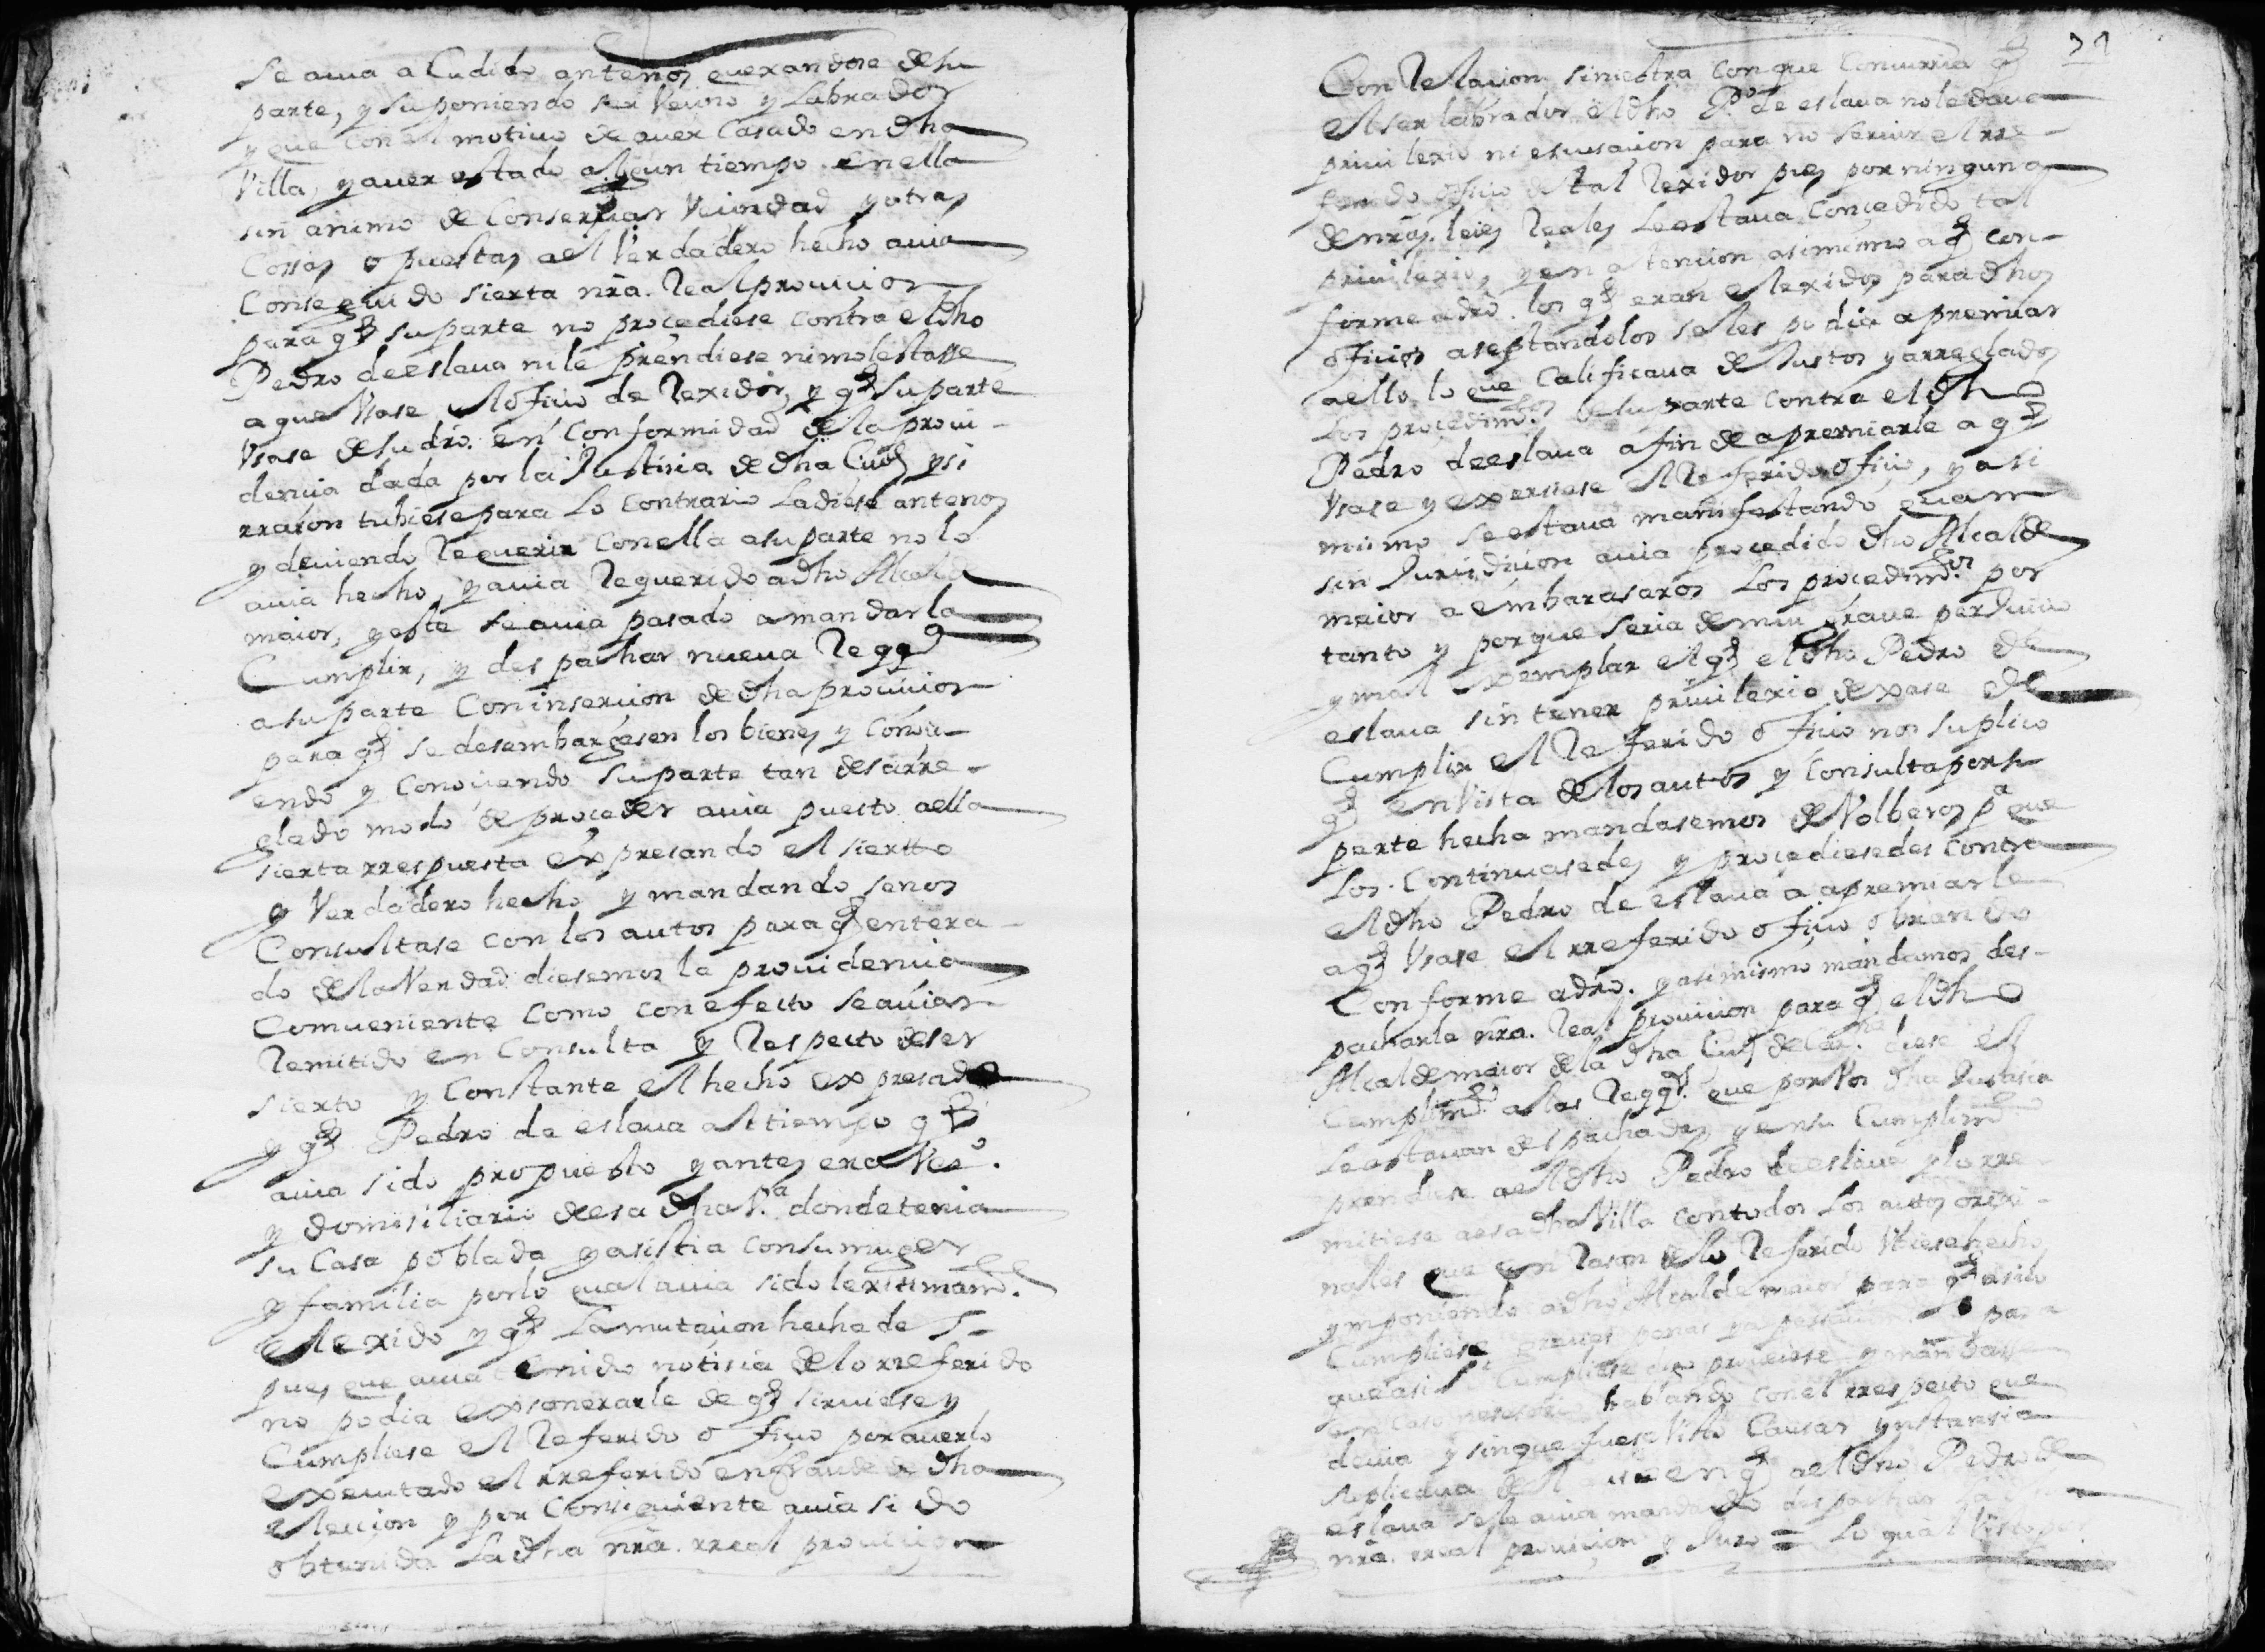 se auia acudido antenos quexandose desu
parte, y suponiendo ser Vecino y Labrador
y que con el motiuo de auer Casado en dha
Villa, y auer estado algun tiempo en ella
sin animo de Conseruar Vecindad y otras
Cossas opuestas ael Verdadero hecho auia
Conseguido sierta nra. Real prouicion
para q suparte no procediese contra eldho
Pedro de eslaua nile prendiese nimolestasse
a que Vsase el oficio de Rexidor, y q suparte
Vsase desu dro. en Conformidad de la proui-
dencia dada por la Justicia de dha Ciud y si
rrason tubiese para Lo Contrario Ladiese antenos
y deuiendo Requerir conella asuparte no lo
auia hecho, y auia Requerido adho Alcalde
maior, y este se auia pasado amandarla
Cumplir, y despachar nueua Requa
asuparte Coninsercion de dha prouicion
para q se desembargasen los bienes y Conoci-
endo y Conociendo suparte tan desarre-
glado modo de proceder auia puesto aella
sierta rrespuesta expresando el siertto
y Verdadero hecho y mandando senos
Consultase con los autos para q entera-
do dela Verdad diesemos la prouidencia
Comueniente Como con efecto se auian
Remitido en Consulta y Respecto deser
sierto y Constante el hecho expresado
y q Pedro de eslaua altiempo q
auia sido propuesto y antes era Veco.
y domisiliario desa dha Va. donde tenia
su Casa poblada y asistia consumuger
y familia porlo qual auia sido lexitimamte.
elexido y q La mutacion hecha de
pues que auia tenido notisia delo rreferido
no podia exsonerarle de q siruiese y
Cumpliese el Referido oficio por auerlo
executado el rreferido en fraude de dha
eleccion y por Consiguiente auia sido
obtenida La dha nra. rreal prouicion
21
Con Relacion siniestra Conque Concurria q
el ser labrador el dho Po. de eslaua no le daua
priuilexio ni escusacion para no seruir el rre-
ferido oficio de tal Rexidor pues por ninguna
de nras. leies Reales Le estaua Concedido tal
priuilexio, y en atencion asimismo a q con-
forme adro. los q eran elexidos para dhos
oficios aseptandolos se les podia apremiar
aello lo que Calificaua de Justos y arreglados
Los procedimtos. desuparte contra el dho
Pedro de eslaua afin de apremiarle a q
Vsase y exersiese el Referido oficio, y asi
mismo se estaua manifestando quan
sin Jurisdicion auia procedido dho Alcalde
maior a embarasaros Los procedimtos. por
tanto y porque seria de mui graue perJuicio
y mal exemplar el q el dho Pedro de
eslaua sin tener priuilexio dexase de
Cumplir el Referido oficio nos suplico
q en Vista de los autos y Consulta porsu
parte hecha mandasemos deVolberos pa que
Los Continuasedes y procediesedes contra
eldho Pedro de eslaua a apremiarle
a q Vsase el rreferido oficio obrando
Conforme adro. y asimismo mandamos des-
pacharle nra. Real prouicion para q el dho
Alcalde maior de la dha Ciud de diese el
Cumplimto. alas Requas. que por Vos dha Justicia
Le estauan despachadas y ensu Cumplimto
prendiese aeldho Pedro de eslaua y lo rre
mitiese aesa dha Villa contodos Los autos orixi-
nales que en Rason delo Referido Vbiese hecho
ymponiendo adho Alcalde maior para q asilo
Cumpliese graues penas para
que asi Cumpliese y mandasse
en caso nesesario hablando con el rrespecto que
deuia y sinque fuese Visto Causar ynstansia
suplicaua del en q aeldho Pedro de
eslaua sele auia mandado despachar
nra. rreal prouicion y Juro = Lo qual Visto por